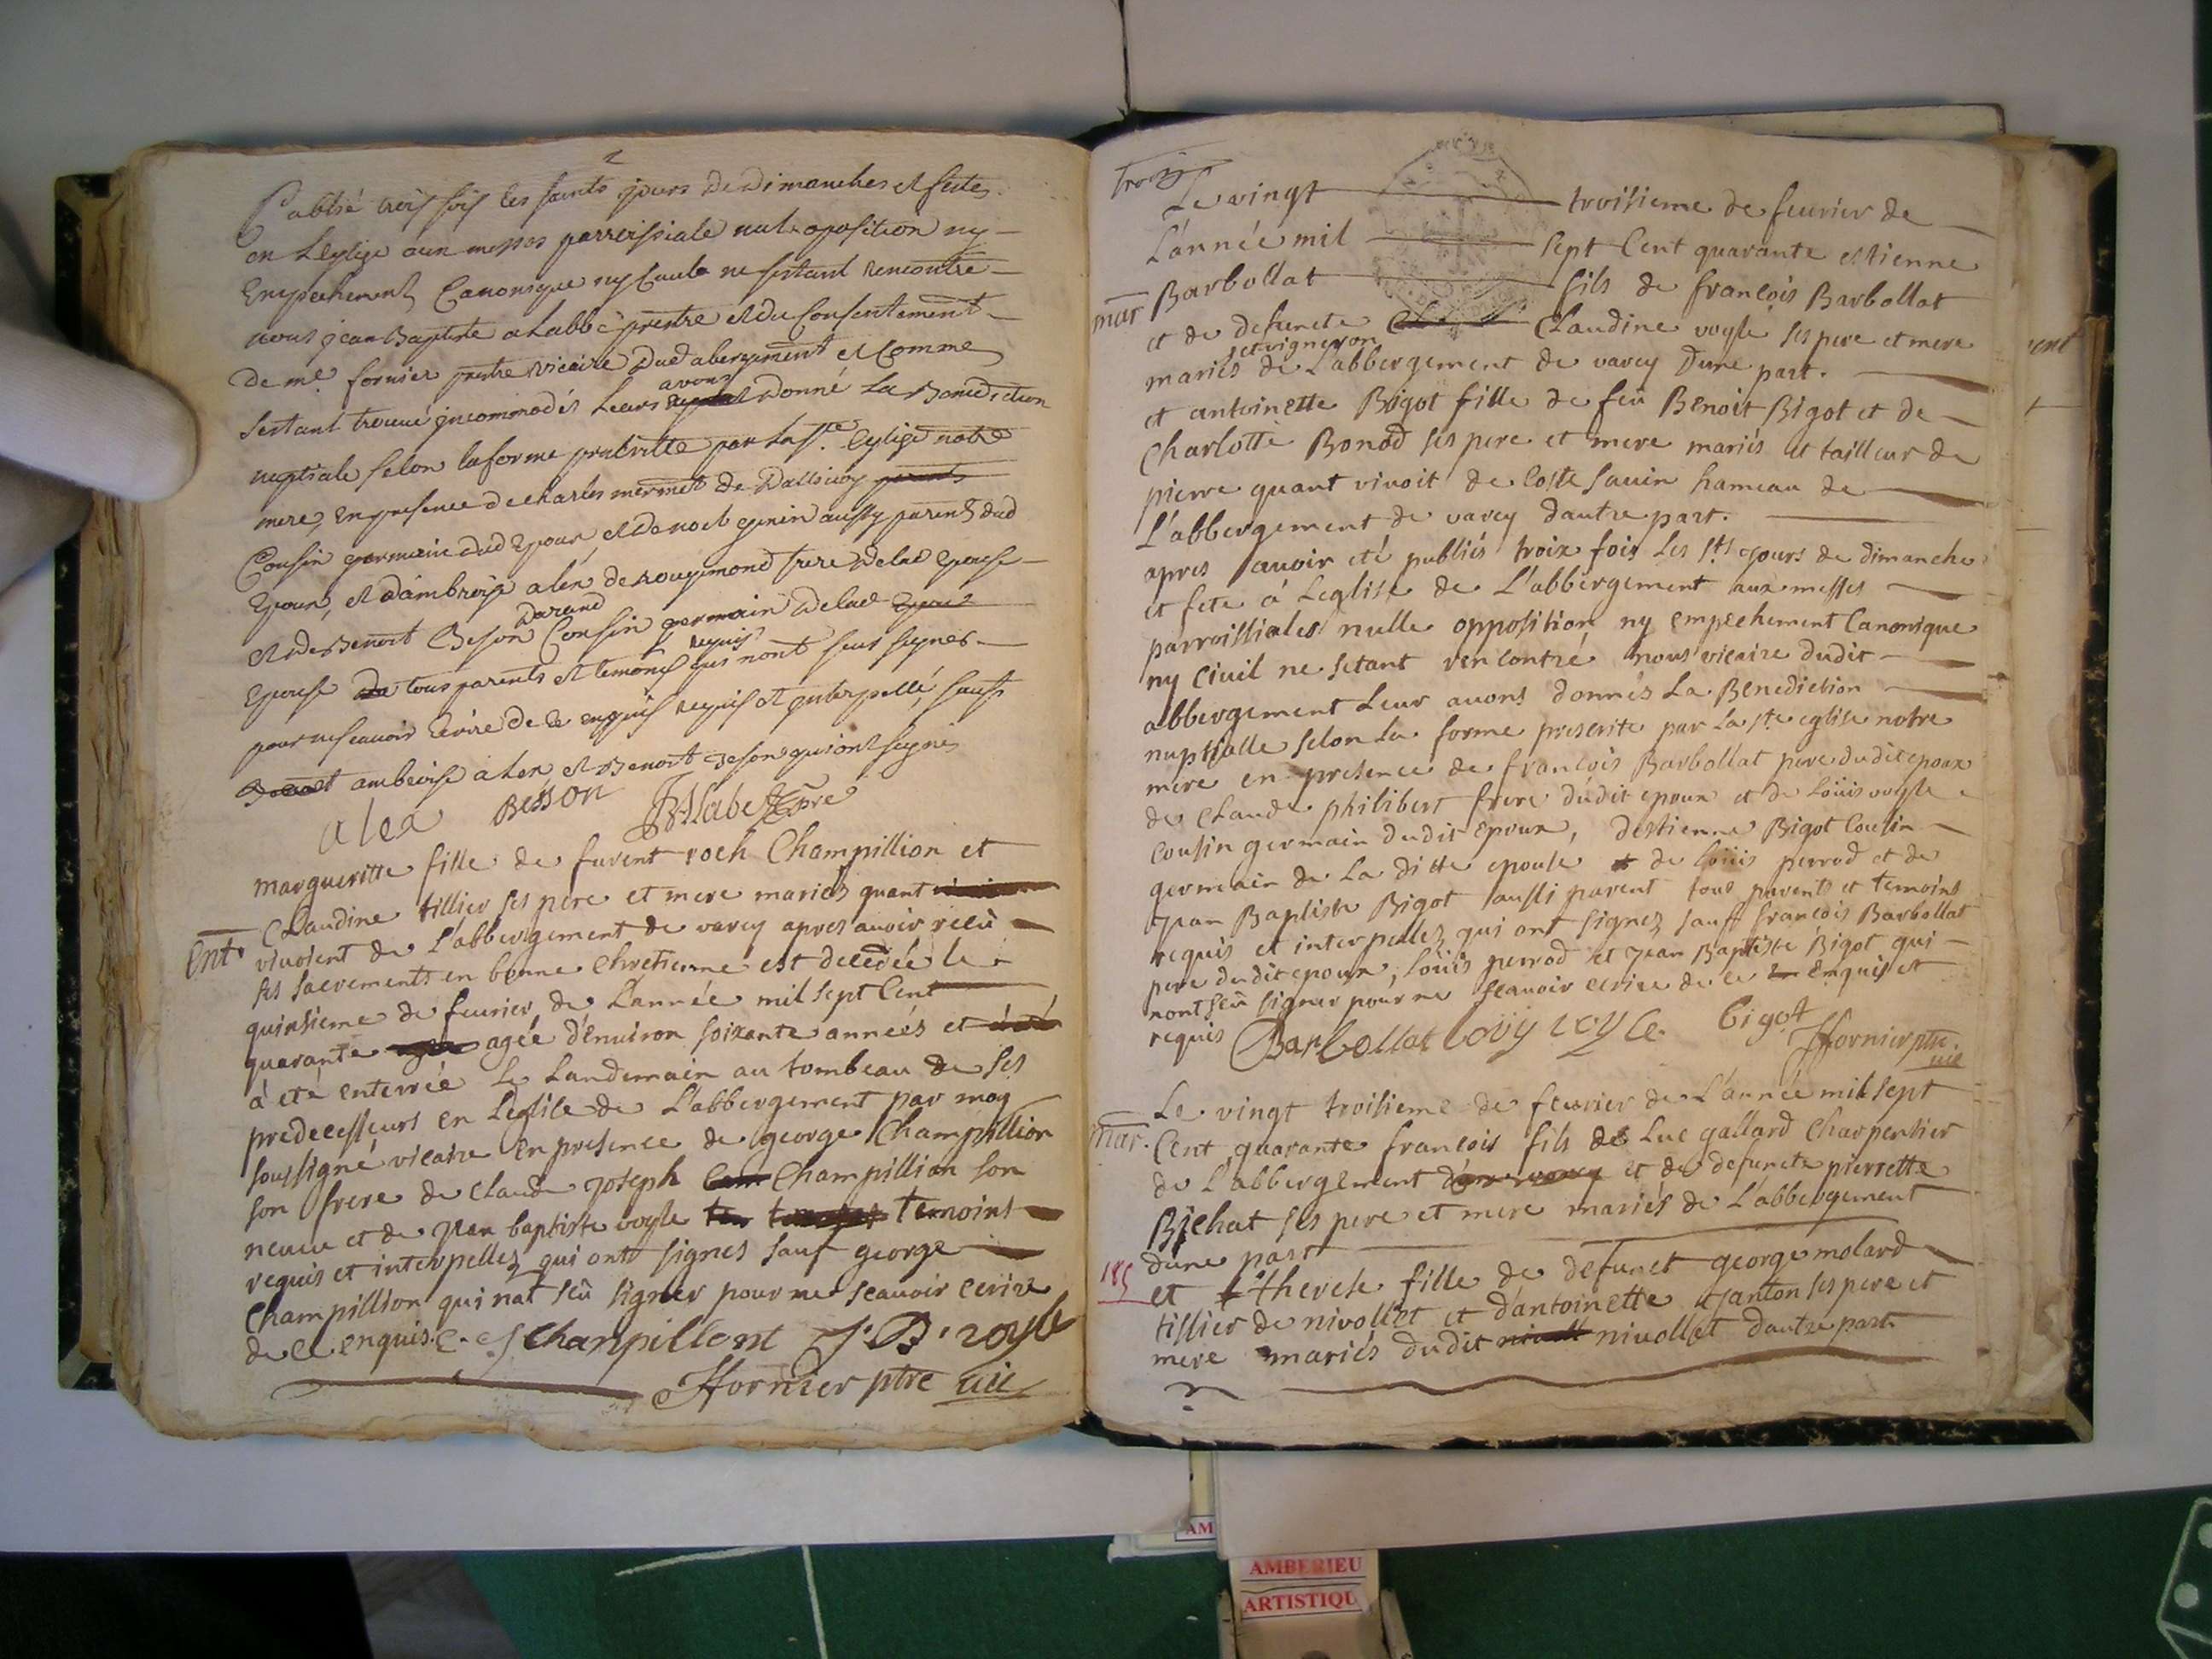 2
Publié trois fois les saints jours de dimanches et festes
en L'eglize aux messes parroissiale nul oposition ny
Empechement Canonique ny Caule ne sestant rencontré
nous jean Baptiste alabbe prestre et du Consentement
de mre fornier prestre vicaire dud abergement et Comme
sestant trouué jncommodés Leurs avons donné La Benediction
nuptiale selon la forme prescritte par La Ste Eglize notre
mere, en presence de charles mermet de
Cousin germain dud Epoux, et de noel genin aussy parent dud
Epoux, et d'ambroise alex de rougemond frere delad Epouse
et de Benoit Beson Darand Cousin germain delad
Epouse tous parents et temoins requis qui nont seus signer
pour ne scauoir Ecrire de ce enquis requis et jnterpellé, sauf
ambroise alex et Benoit Beson qui ont signes
alex Besson
margueritte fille de furent roch Champillion et
Claudine tillier ses pere et mere mariés quant
Ent. vivoient de L'abbergement de varey apres auoir recû
ses sacrements en bonne chretienne est decedée le
quinsieme de feurier de L'année mil sept Cent
quarante agée d'enuiron soixante années et
à eté enterrée le Landemain au tombeau de ses
predecesseurs en L'eglise de L'abbergement par moy
soussigné vicaire en presence de george Champillion
son frere de claude joseph Champillion son
neueu et de jean baptiste voyle temoins
requis et interpellez qui ont signes sauf george
Champillion qui nat scû signer pour ne scauoir ecrire
de ce enquis. C. J Champilliont J. B. voyle
ffornier ptre vic
trois
Le vingt troisieme de feurier de
L'année mil sept Cent quarante estienne
mar Barbollat fils de françois Barbollat
et de defuncte Claudine voyle ses pere et mere
mariés et vigneron de L'abbergement de varey d'une part.
et antoinette Bigot fille de feû Benoit Bigot et de
Charlotte Bonod ses pere et mere mariés et tailleur de
pierre quant vivoit de Coste sauin hameau de
L'abbergement de varey dautre part.
apres auoir eté publiés troix fois Les Sts jours de dimanche
et fete à L'eglise de L'abbergement aux messes
parroissiales nulle opposition ny empechement Canonique
ny Ciuil ne setant rencontré nous vicaire dudit
abbergement Leur auons donnés La Benediction
nuptialle selon La forme prescrite par La ste eglise notre
mere en presence de françois Barbollat pere dudit epoux
de Claude philibert frere dudit epoux et de Loüis voyle
Cousin germain dudit Epoux, d'estienne Bigot Cousin
germain de La ditte epouse de loüis perrod et de
jean Baptiste Bigot aussi parent tous parents et temoins
requis et interpellez qui ont signez sauff françois Barbollat
pere dudit epoux, Loüis perrod et jean Baptiste Bigot qui
nont scû signer pour ne scauoir ecrire de ce Enquis et
requis Barbollat Loüy voyle Bigot ffornier ptre
vic
Le vingt troisieme de feurier de L'année mil sept
mar. Cent quarante françois fils de Luc gallard Charpentier
de L'abbergement et de defuncte pierrette
Bichat ses pere et mere mariés de L'abbergement
d'une part
185 et therese fille de defunct george molard
tillier de nivollet et d'antoinette janton ses pere et
mere mariés dudit nivollet dautre part
AM
AMBERIEU
ARTISTIQU